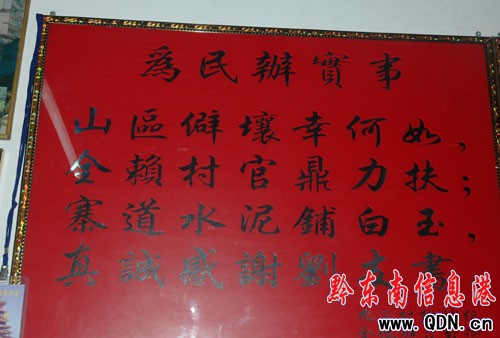 爲民辦實事
山區僻壤幸何如，
全賴村官鼎力扶；
寨道水泥鋪白玉，
真誠感謝劉支書
黔东南信息港
www.QDN.cn